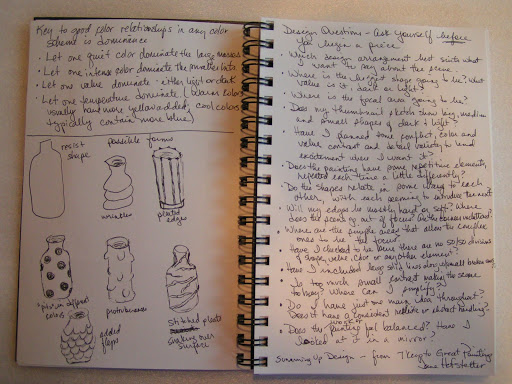 Key to good color relationships in any color
scheme is dominance
• Let one quiet color dominate the large masses
• Let one intense color dominate the smaller bits
• Let one value dominate - either light or dark
• Let one temperature dominate (Warm colors
usually have more yellow added, cool colors
typically contain more blue)
possible forms
resist
shape
wrinkles
pleated
edges
colors
protuberances
added
flaps
stitched pleats
over
surface
Design Questions - Ask Yourself before
you begin a piece
• Which design arrangement best suits what
I want to say about the scene?
• Where is the biggest shape going to be? What
value is it, dark or light?
• Where is the focal area going to be?
• Does my thumbnail sketch show large, medium
and small shapes of dark & light?
• Have I planned some conflict, color and
value contrast and detail variety to lend
excitement where I want it?
• Does the painting have some repetitive elements,
repeated each time a little differently?
• Do the shapes relate in some way to each
other, with each seeming to introduce the next?
• Will my edges be mostly hard or soft? Where
does the scene go out of focus
• Where are the simple areas that allow the complex
ones to be the focus?
• Have I checked to be sure there are no 50/50 divisions
of shape, value, color or any other element
• Have I included long solid lines along w/ small broken ones
• Is too much small contrast making the scene
too busy? Where can I simplify?
• Do I have just one main idea throughout?
Does it have a consistent realistic or abstract handling?
• Does the painting feel balanced? Have I
looked at it in a mirror?
Summing Up Design - from 7 Keys to Great Paintings
Jane Hofstetter